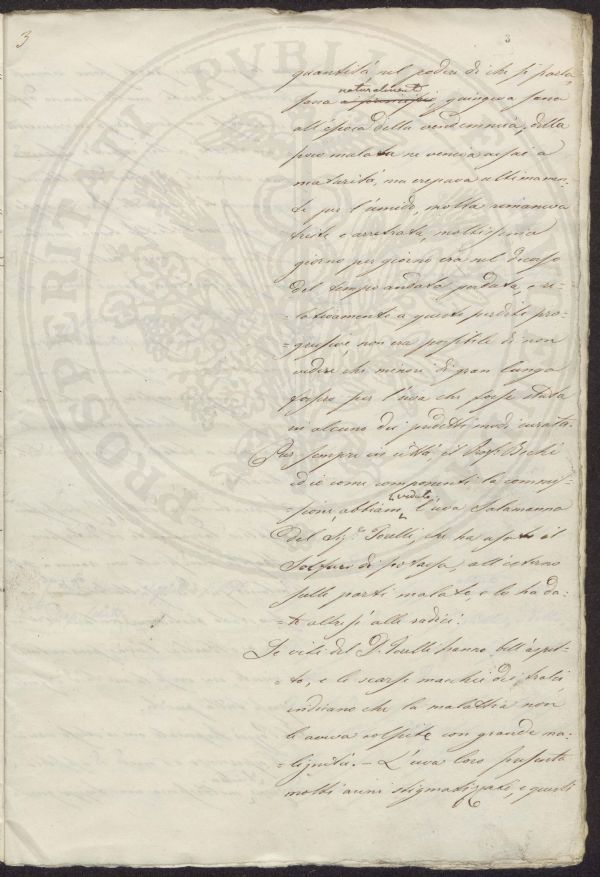 3
3
quantità, nel podere di chi si parla,
naturalmente
sana a principio, giungeva sana
all'epoca della vendemmia, della
poco malata ne veniva assai a
maturità, ma crepava ultimamen-
te per l'umido, molta rimaneva
triste e arretrata, moltissima
giorno per giorno era nel decorso
del tempo andata perduta, e re-
=lativamente a queste perdite pro-
=gressive, non era possibile di non
vedere che minori di gran lunga
fossero per l'uva che fosse stata
in alcuno dei predetti modi curata.
Pur sempre in città, il Prof. Bechi
ed io come componenti la commis-
veduto
=sione, abbiam l'uva Salamanna
del Sig.r Perelli, che ha usato il
Solfuro di potassa, all'esterno
sulle parti malate, e lo ha da-
=to altresì alle radici.
Le viti del D. Perelli hanno bell'aspet-
=to, e le scarse macchie dei tralci,
indicano che la malattia non
le aveva colpite con grande ma-
=lignità. — L'uva loro presenta
molti acini stigmatizzati, e questi
PROSPERITATI PVBLICAE